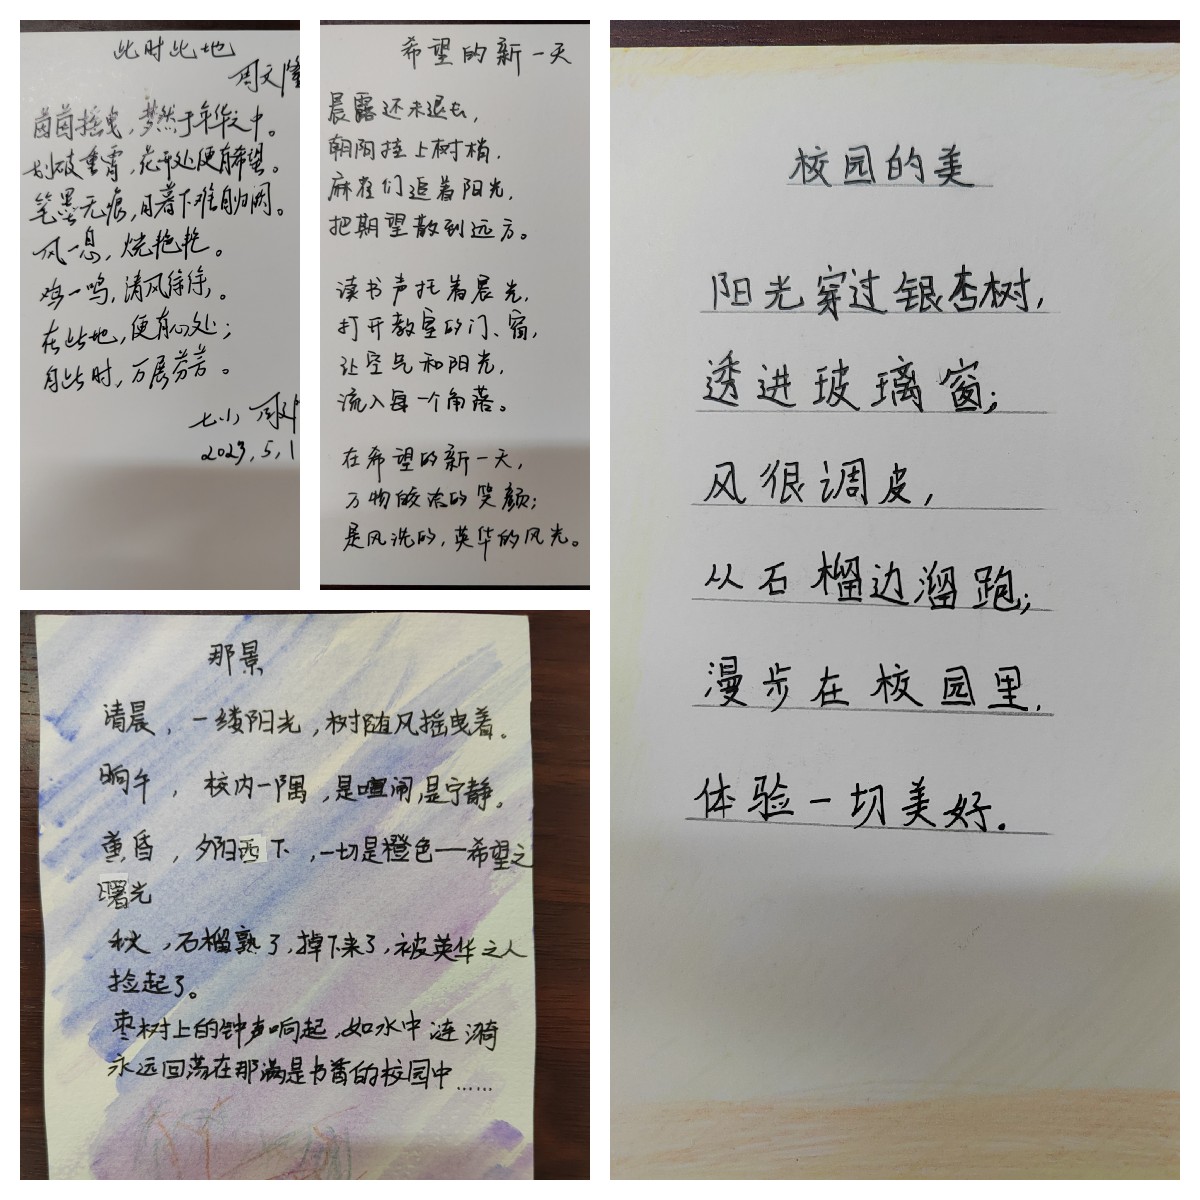 此时此地
周文隆
茵茵摇曳，梦然于年华之中。
划破重霄，花开处便有希望。
笔墨无痕，日暮下难自归阔。
风一息，烧艳艳。
鸡一鸣，清风徐徐，。
在此地，便有心处；
自此时，万展芬芳。
七小
2023.5.1
希望的新一天
晨露还未退去，
朝阳挂上树梢，
麻雀们追着阳光，
把期望散到远方。
读书声托着晨光，
打开教室的门、窗，
让空气和阳光，
流入每一个角落。
在希望的新一天，
万物皎洁的笑颜；
是风洗的，英华的风光。
那景
清晨，一缕阳光，树随风摇曳着。
晌午，校内一隅，是喧闹，是宁静。
黄昏，夕阳西下，一切是橙色——希望之
曙光
秋，石榴熟了，掉下来了，被英华之人
捡起了。
枣树上的钟声响起，如水中涟漪
永远回荡在那满是书香的校园中……
校园的美
阳光穿过银杏树，
透进玻璃窗；
风很调皮，
从石榴边溜跑；
漫步在校园里，
体验一切美好.